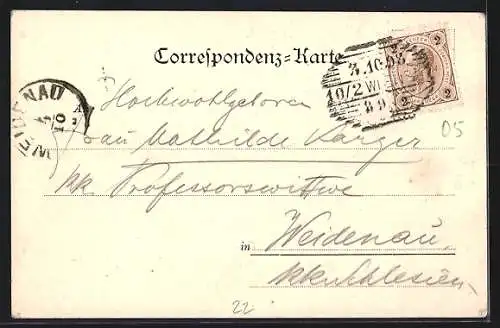 Correspondenz-Karte
3.10.98
10/2 WI
89
2 2
WEIDENAU
4
10
A
Hochwohlgeboren
Frau Mathilde Karger
kk. Professorswittwe
in Weidenau,
kk. Schlesien
05
22